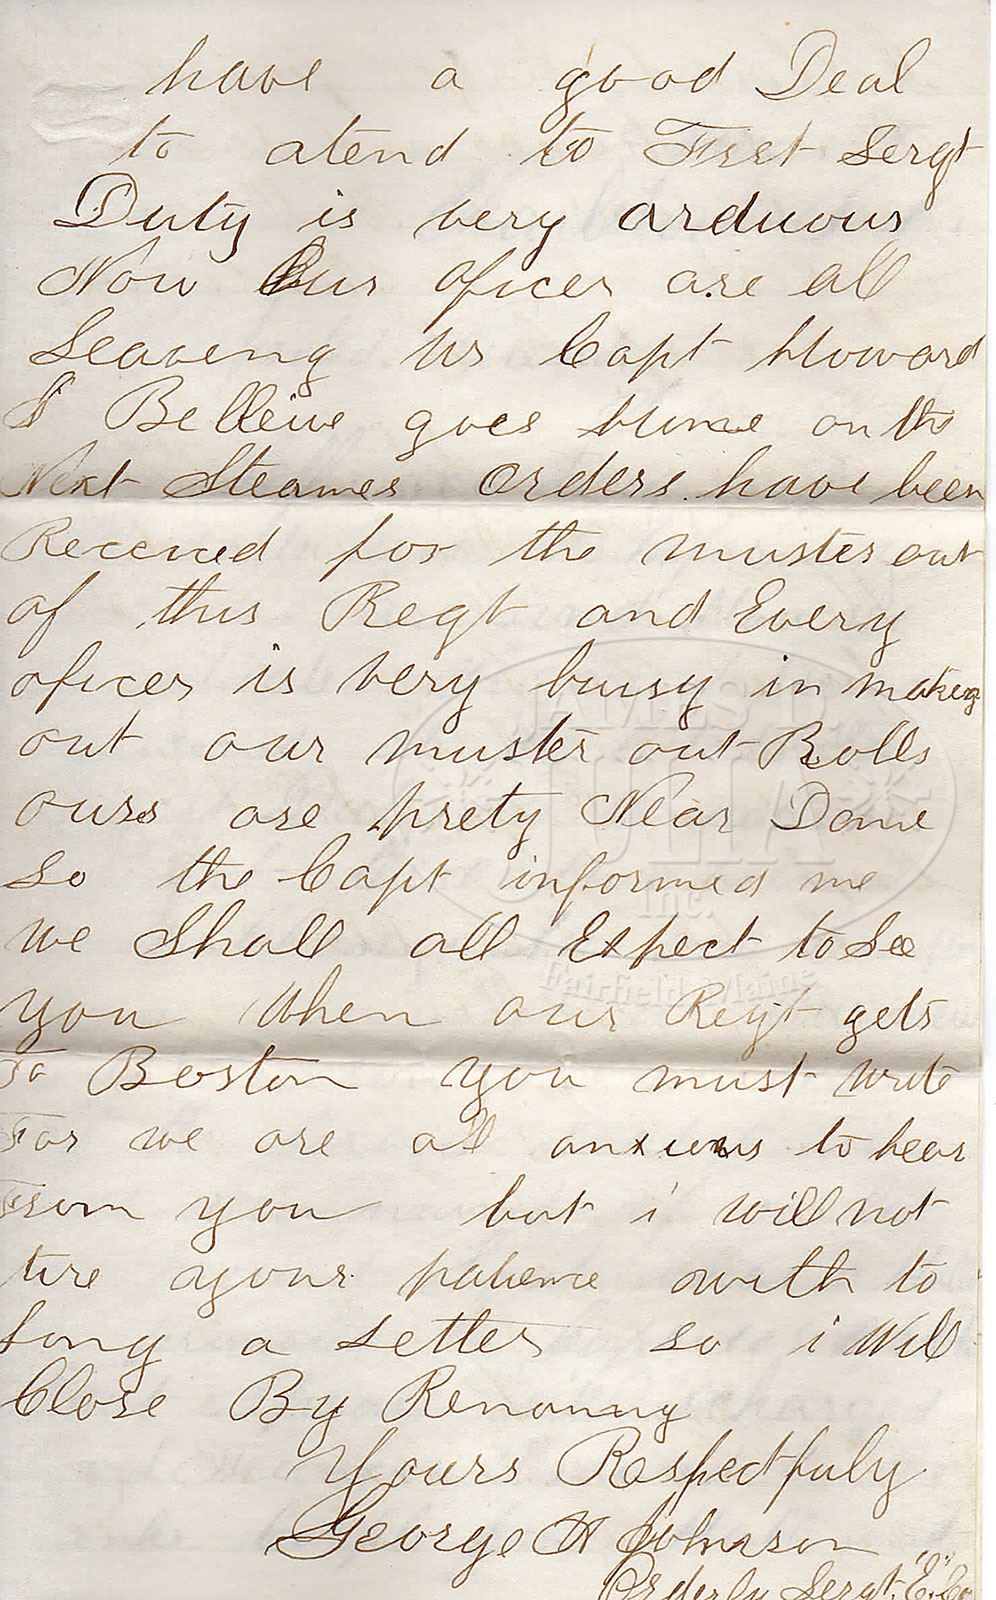 have a good Deal
to atend to First Sergt
Duty is very arduous
Now Our oficer are all
Leaveng us Capt Howard
I Belleive goes hume on the
Next Steamer orders have been
Receeved for the muster out
of this Regt and Every
oficer is very buisy in making
out our muster out Rolls
ours are prety Near Done
so the Capt informed me
we Shall all Expect to See
you when our Regt gets
To Boston you must write
For we are all anxious to hear
From you but i will not
tire your patience with to
Long a Letter so i Will
Close By Remaining
Yours Respectfuly
George H Johnson
Orderly Sergt. "E" Co
JAMES D.
JULIA
Inc.
Fairfield, Maine